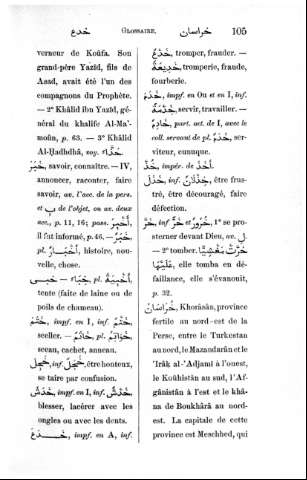 خدع
GLOSSAIRE.
خراسان
105
verneur de Koûfa. Son
grand-père Yazîd, fils de
Asad, avait été l'un des
compagnons du Prophète.
— 2° Khâlid ibn Yazîd, gé-
néral du khalife Al-Ma'-
moûn, p. 63. — 3° Khâlid
Al-Ḥadhdhâ, voy. حذّاء.
خَبَرَ, savoir, connaître. — IV,
annoncer, raconter, faire
savoir, av. l'acc. de la pers.
et ب de l'objet, ou av. deux
acc., p. 11, 16; pass. أُخْبِرَ,
il fut informé, p. 46. — خَبَرٌ,
pl. أَخْبَارٌ, histoire, nou-
velle, chose.
خبى — خِبَاءٌ, pl. أَخْبِيَةٌ,
tente (faite de laine ou de
poils de chameau).
خَتَمَ, impf. en I, inf. خَتْمٌ,
sceller. — خَاتَمٌ, pl. خَوَاتِمُ,
sceau, cachet, anneau.
خَجِلَ, inf. خَجَلٌ, être honteux,
se taire par confusion.
خَدَشَ, impf. en I, inf. خَدْشٌ,
blesser, lacérer avec les
ongles ou avec les dents.
خَدَعَ, impf. en A, inf.
خَدْعٌ, tromper, frauder. —
خَدِيعَةٌ, tromperie, fraude,
fourberie.
خَدَمَ, impf. en Ou et en I, inf.
خِدْمَةٌ, servir, travailler. —
خَادِمٌ, part. act. de I, avec le
coll. servant de pl. خَدَمٌ, ser-
viteur, eunuque.
خُذْ, impér. de أَخَذَ.
خَذَلَ, inf. خِذْلَانٌ, être frus-
tré, être découragé, faire
défection.
خَرَّ, inf. خَرٌّ et خُرُورٌ, 1° se pro-
sterner devant Dieu, av. ل.
— 2° tomber. خَرَّتْ مَغْشِيًّا
عَلَيْهَا, elle tomba en dé-
faillance, elle s'évanouit,
p. 32.
خُرَاسَان, Khorâsân, province
fertile au nord-est de la
Perse, entre le Turkestan
au nord, le Mazandarân et le
'Irâk al-'Adjamî à l'ouest,
le Koûhistân au sud, l'Af-
gânistân à l'est et le khâ-
na de Boukhârâ au nord-
est. La capitale de cette
province est Meschhed, qui